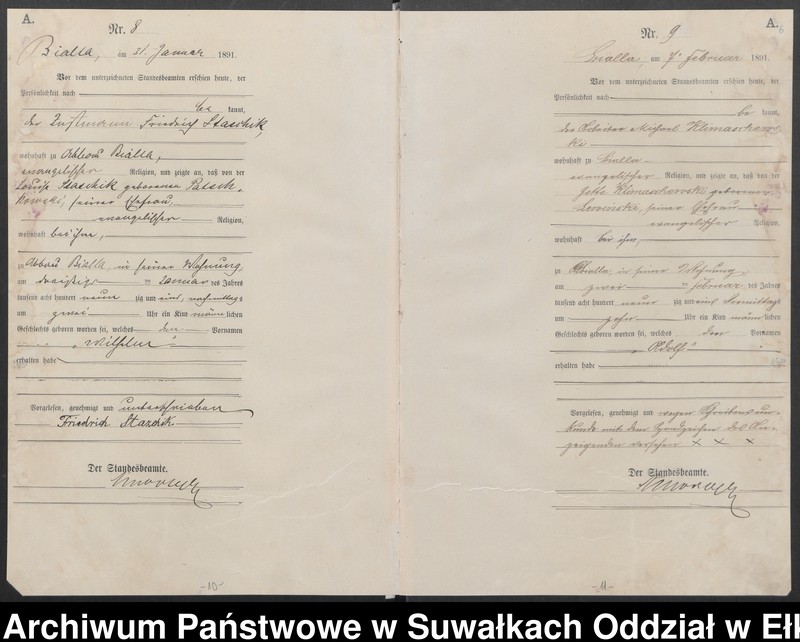 A.
Nr. 8
Bialla, am 31. Januar 1891.
Vor dem unterzeichneten Standesbeamten erschien heute, der
Persönlichkeit nach
be kannt,
der Instmann Friedrich Staschik,
wohnhaft zu Abbau Bialla,
evangelischer Religion, und zeigte an, daß von der
Louise Staschik geborenen Patsch-
kowski, seiner Ehefrau,
evangelischer Religion,
wohnhaft bei ihm,
zu Abbau Bialla, in seiner Wohnung,
am dreißigsten Januar des Jahres
tausend acht hundert neun zig und eins, nachmittags
um zwei Uhr ein Kind männlichen
Geschlechts geboren worden sei, welches den Vornamen
„Wilhelm“
erhalten habe
Vorgelesen, genehmigt und unterschrieben
Friedrich Staschik
Der Standesbeamte.
-10-
A.
Nr. 9
Bialla, am 7. Februar 1891.
Vor dem unterzeichneten Standesbeamten erschien heute, der
Persönlichkeit nach
be kannt,
der Arbeiter Michael Klimaschews-
ki
wohnhaft zu Bialla
evangelischer Religion, und zeigte an, daß von der
Jette Klimaschewski geborenen
seiner Ehefrau
evangelischer Religion,
wohnhaft bei ihm,
zu Bialla, in seiner Wohnung,
am zwei Februar des Jahres
tausend acht hundert neun zig und eins Vormittags
um zehn Uhr ein Kind männlichen
Geschlechts geboren worden sei, welches den Vornamen
„Adolf“
erhalten habe
Vorgelesen, genehmigt und wegen Schreibensun-
kunde mit dem Handzeichen des An-
zeigenden versehen x x x
Der Standesbeamte.
-11-
Archiwum Państwowe w Suwałkach Oddział w Eł